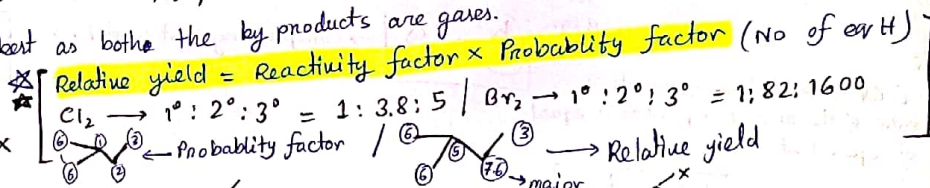 best as bothe the by products are gases.
Relative yield = Reactivity factor x Probablity factor (No of eq H)
Cl2 → 1° : 2° : 3° = 1 : 3.8 : 5 | Br2 → 1° : 2° : 3° = 1 : 82 : 1600
x 6 6 1 2 3 ← Probablity factor / 6 6 5 7.6 3 → Relative yield
→ major x